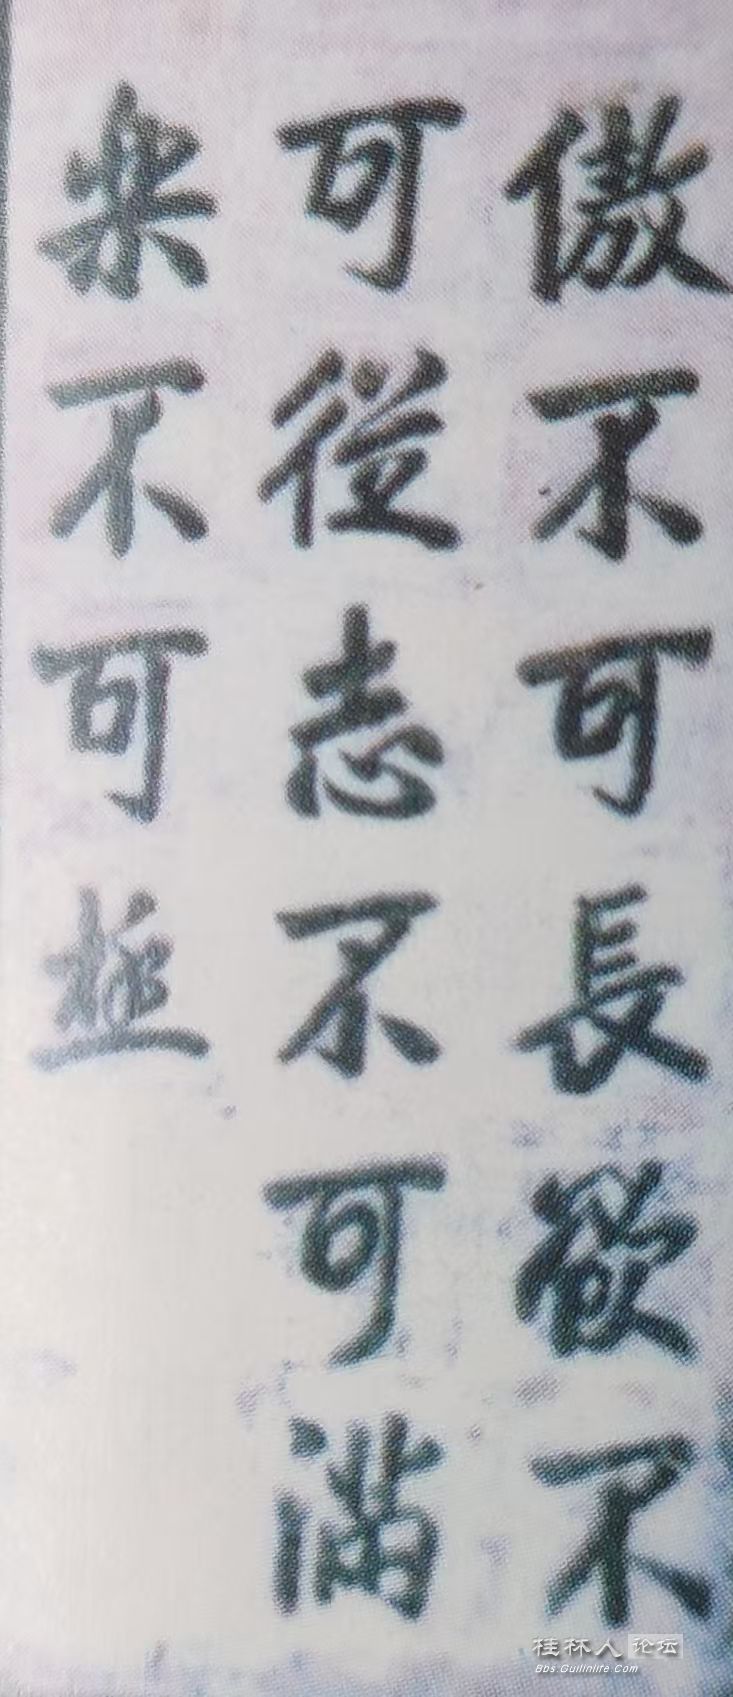 傲不可長欲不
可從志不可满
樂不可極
桂林人论坛
Bbs.Guilinlife.Com